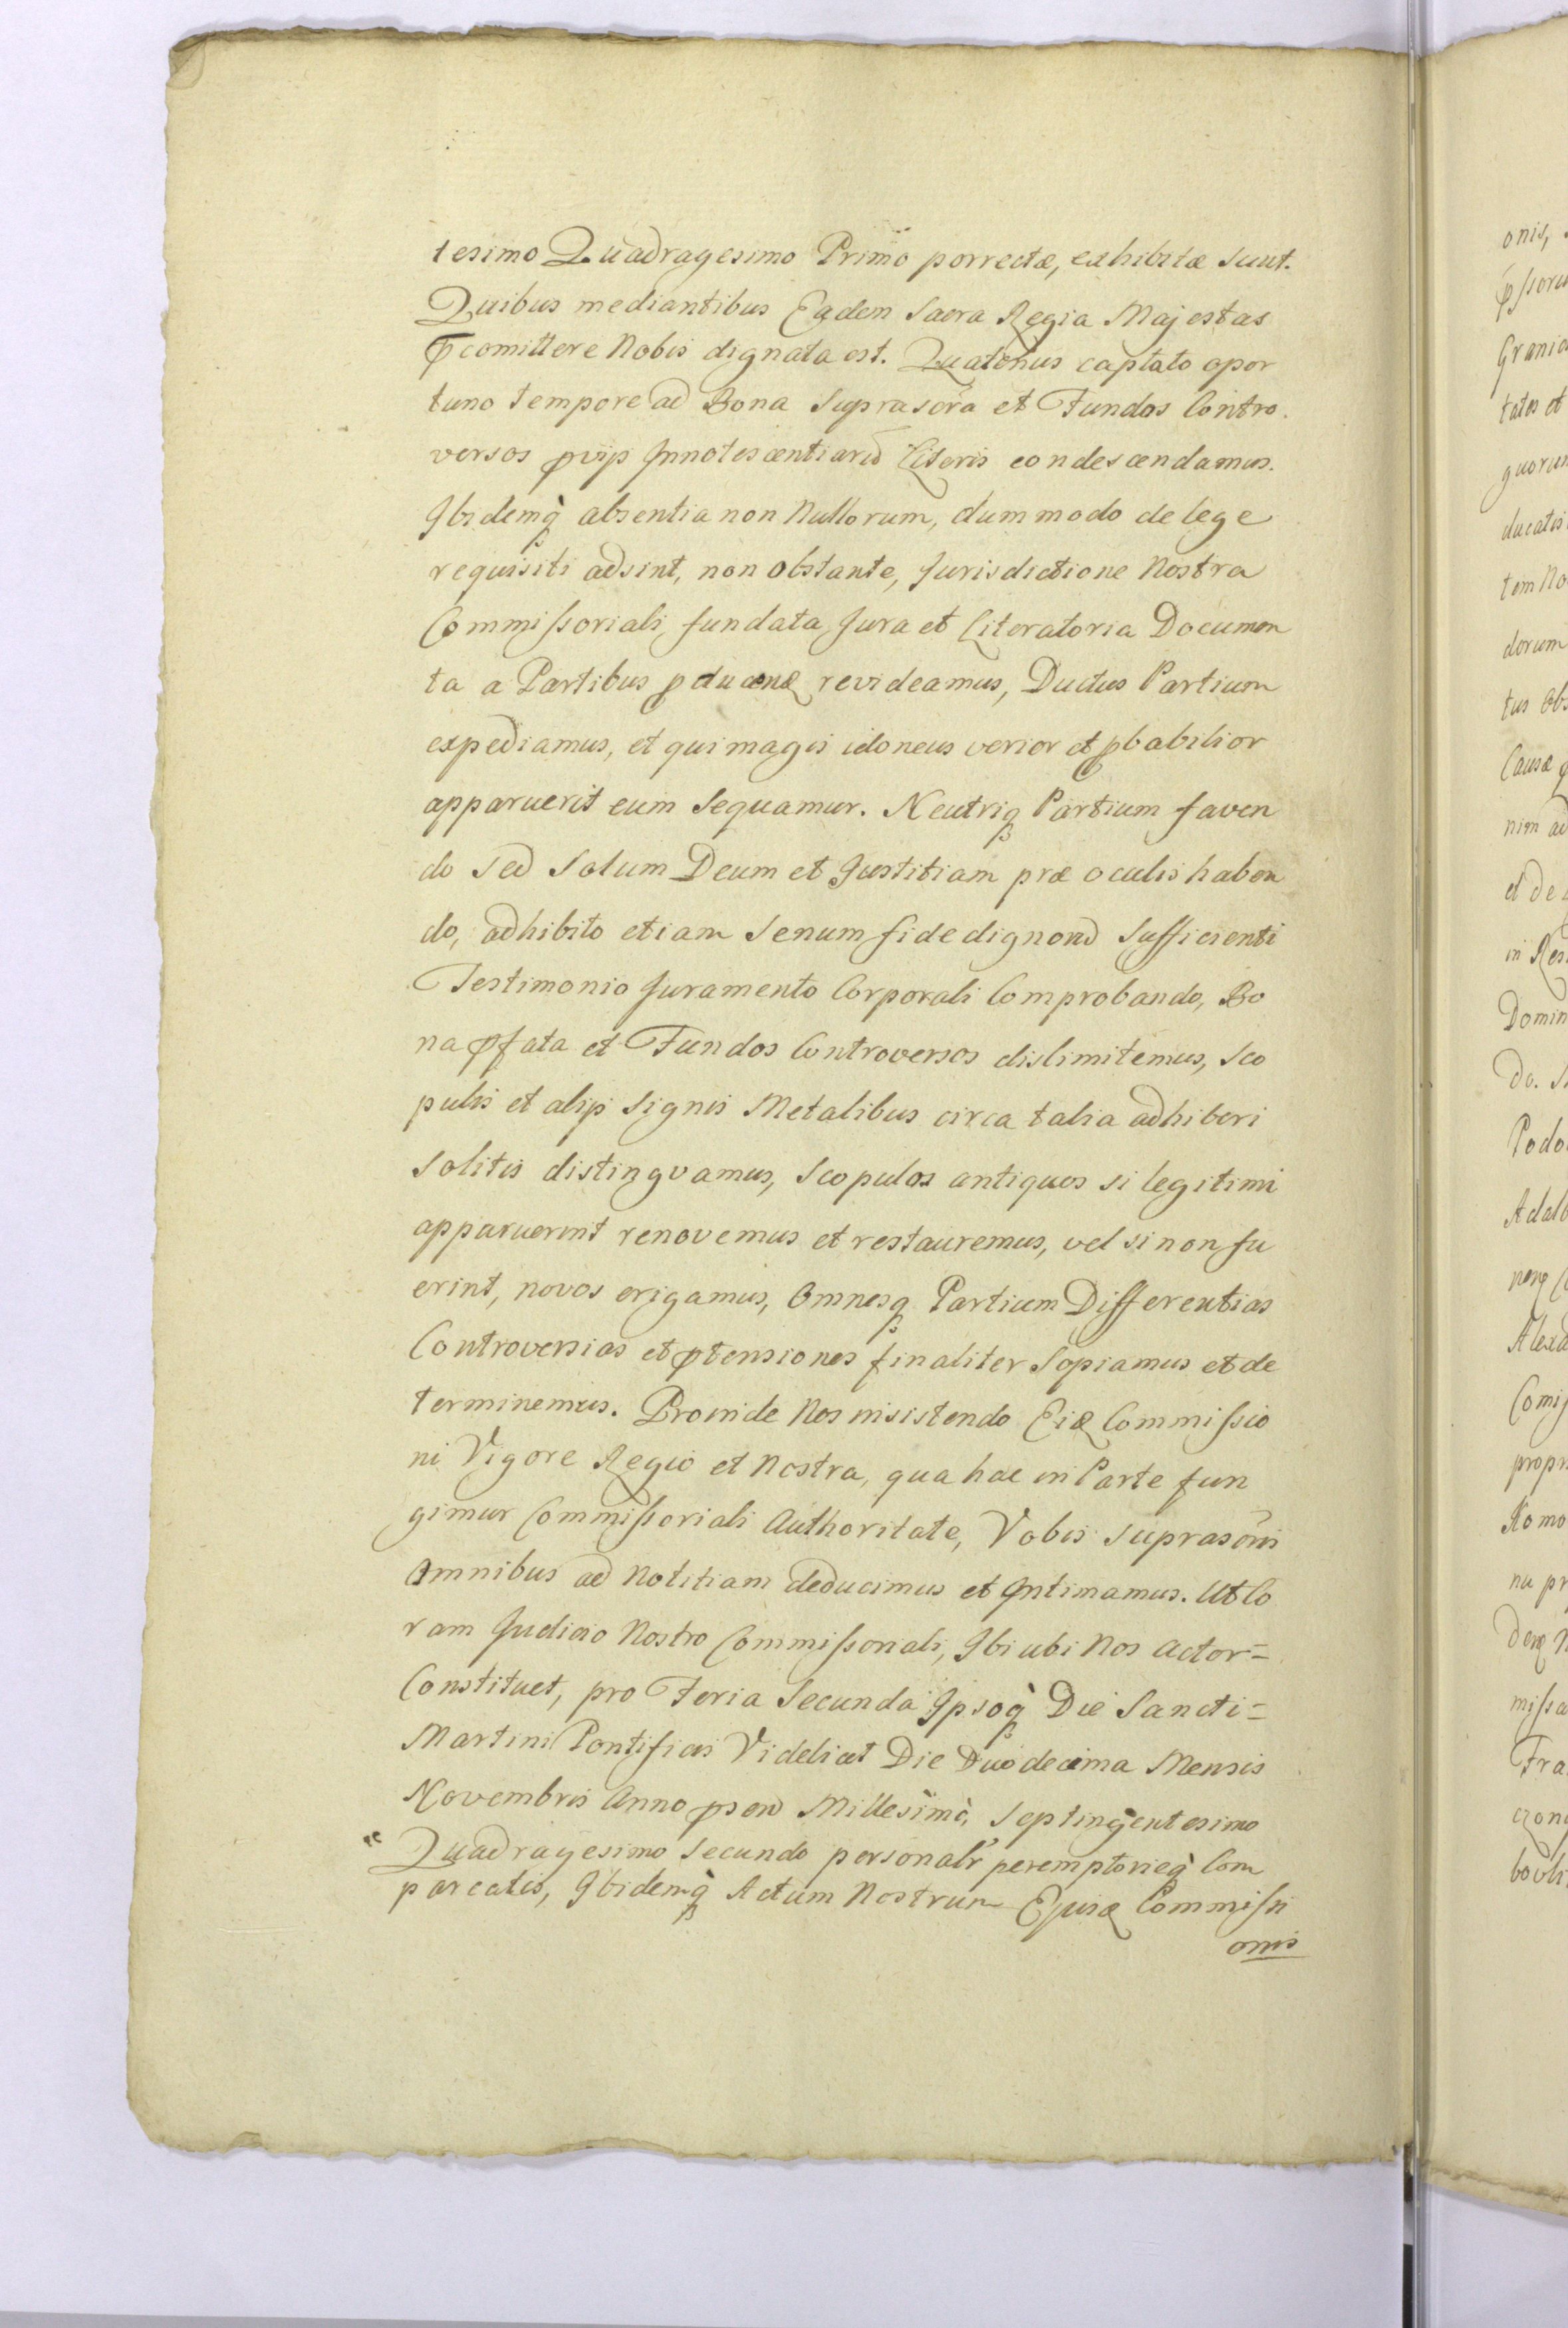 tesimo Quadragesimo Primo porrectæ, exhibitæ sunt.
Quibus mediantibus Eadem Sacra Regia Majestas
p̄comittere Nobis dignata est. Quatenus captato opor
tuno tempore ad Bona Suprascr̃a et Fundos Contro.
versos pvijs Innotescentiarũ Literis condescendamus.
Ibidemq̀ absentia non Nullorum, dummodo de lege
requisiti adsint, non obstante, Jurisdictione Nostra
Commissoriali fundata, Jura et Literatoria Documen
ta a Partibus pducenđ revideamus, Ductus Partium
expediamus, et qui magis idoneus verior et pbabilior
apparuerit eum sequamur. Neutriq Partium faven
do sed Solum Deum et Justitiam præ oculis haben
do, adhibito etiam Senum fide dignorũ sufficienti
Testimonio Juramento Corporali Comprobando, Bo
na pfata et Fundos Controversos dislimitemus, Sco
pulis et alijs Signis Metalibus circa talia adhiberi
Solitis distingvamus, Scopulos antiquos si legitimi
apparuerint renovemus et restauremus, vel si non fu
erint, novos erigamus, Omnesq Partium Differentias
Controversias et ptensiones finaliter Sopiamus et de
terminemus. Proinde Nos insistendo Eiđ Commissio
ni Vigore Regio et Nostra, qua hac in Parte fun
gimur Commissoriali Authoritate, Vobis suprascr̃is
Omnibus ad Notitiam deducimus et Intimamus. Ut Co
ram Judicio Nostro Commissoriali, Ibi ubi Nos Actor=
Constituet, pro Feria Secunda Ipsoq̀ Die Sancti=
Martini Pontificis Videlicet Die Duodecima Mensis
Novembris Anno psen Millesimo, Septingentesimo
Quadragesimo Secundo personalr peremptorieq̀ Com
pareatis, Ibidemq̀ Actum Nostrum Ejusđ Commissi
onis
onis,
Grania
tates et
quorum
ducatis
tem No
dorum
tus Obs
Causæ
niam ad
et de
in Res
Domin
do. S
Podo
Adalb
Alexa
Comis
propri
Komo
na pr
missa
Fra
czong